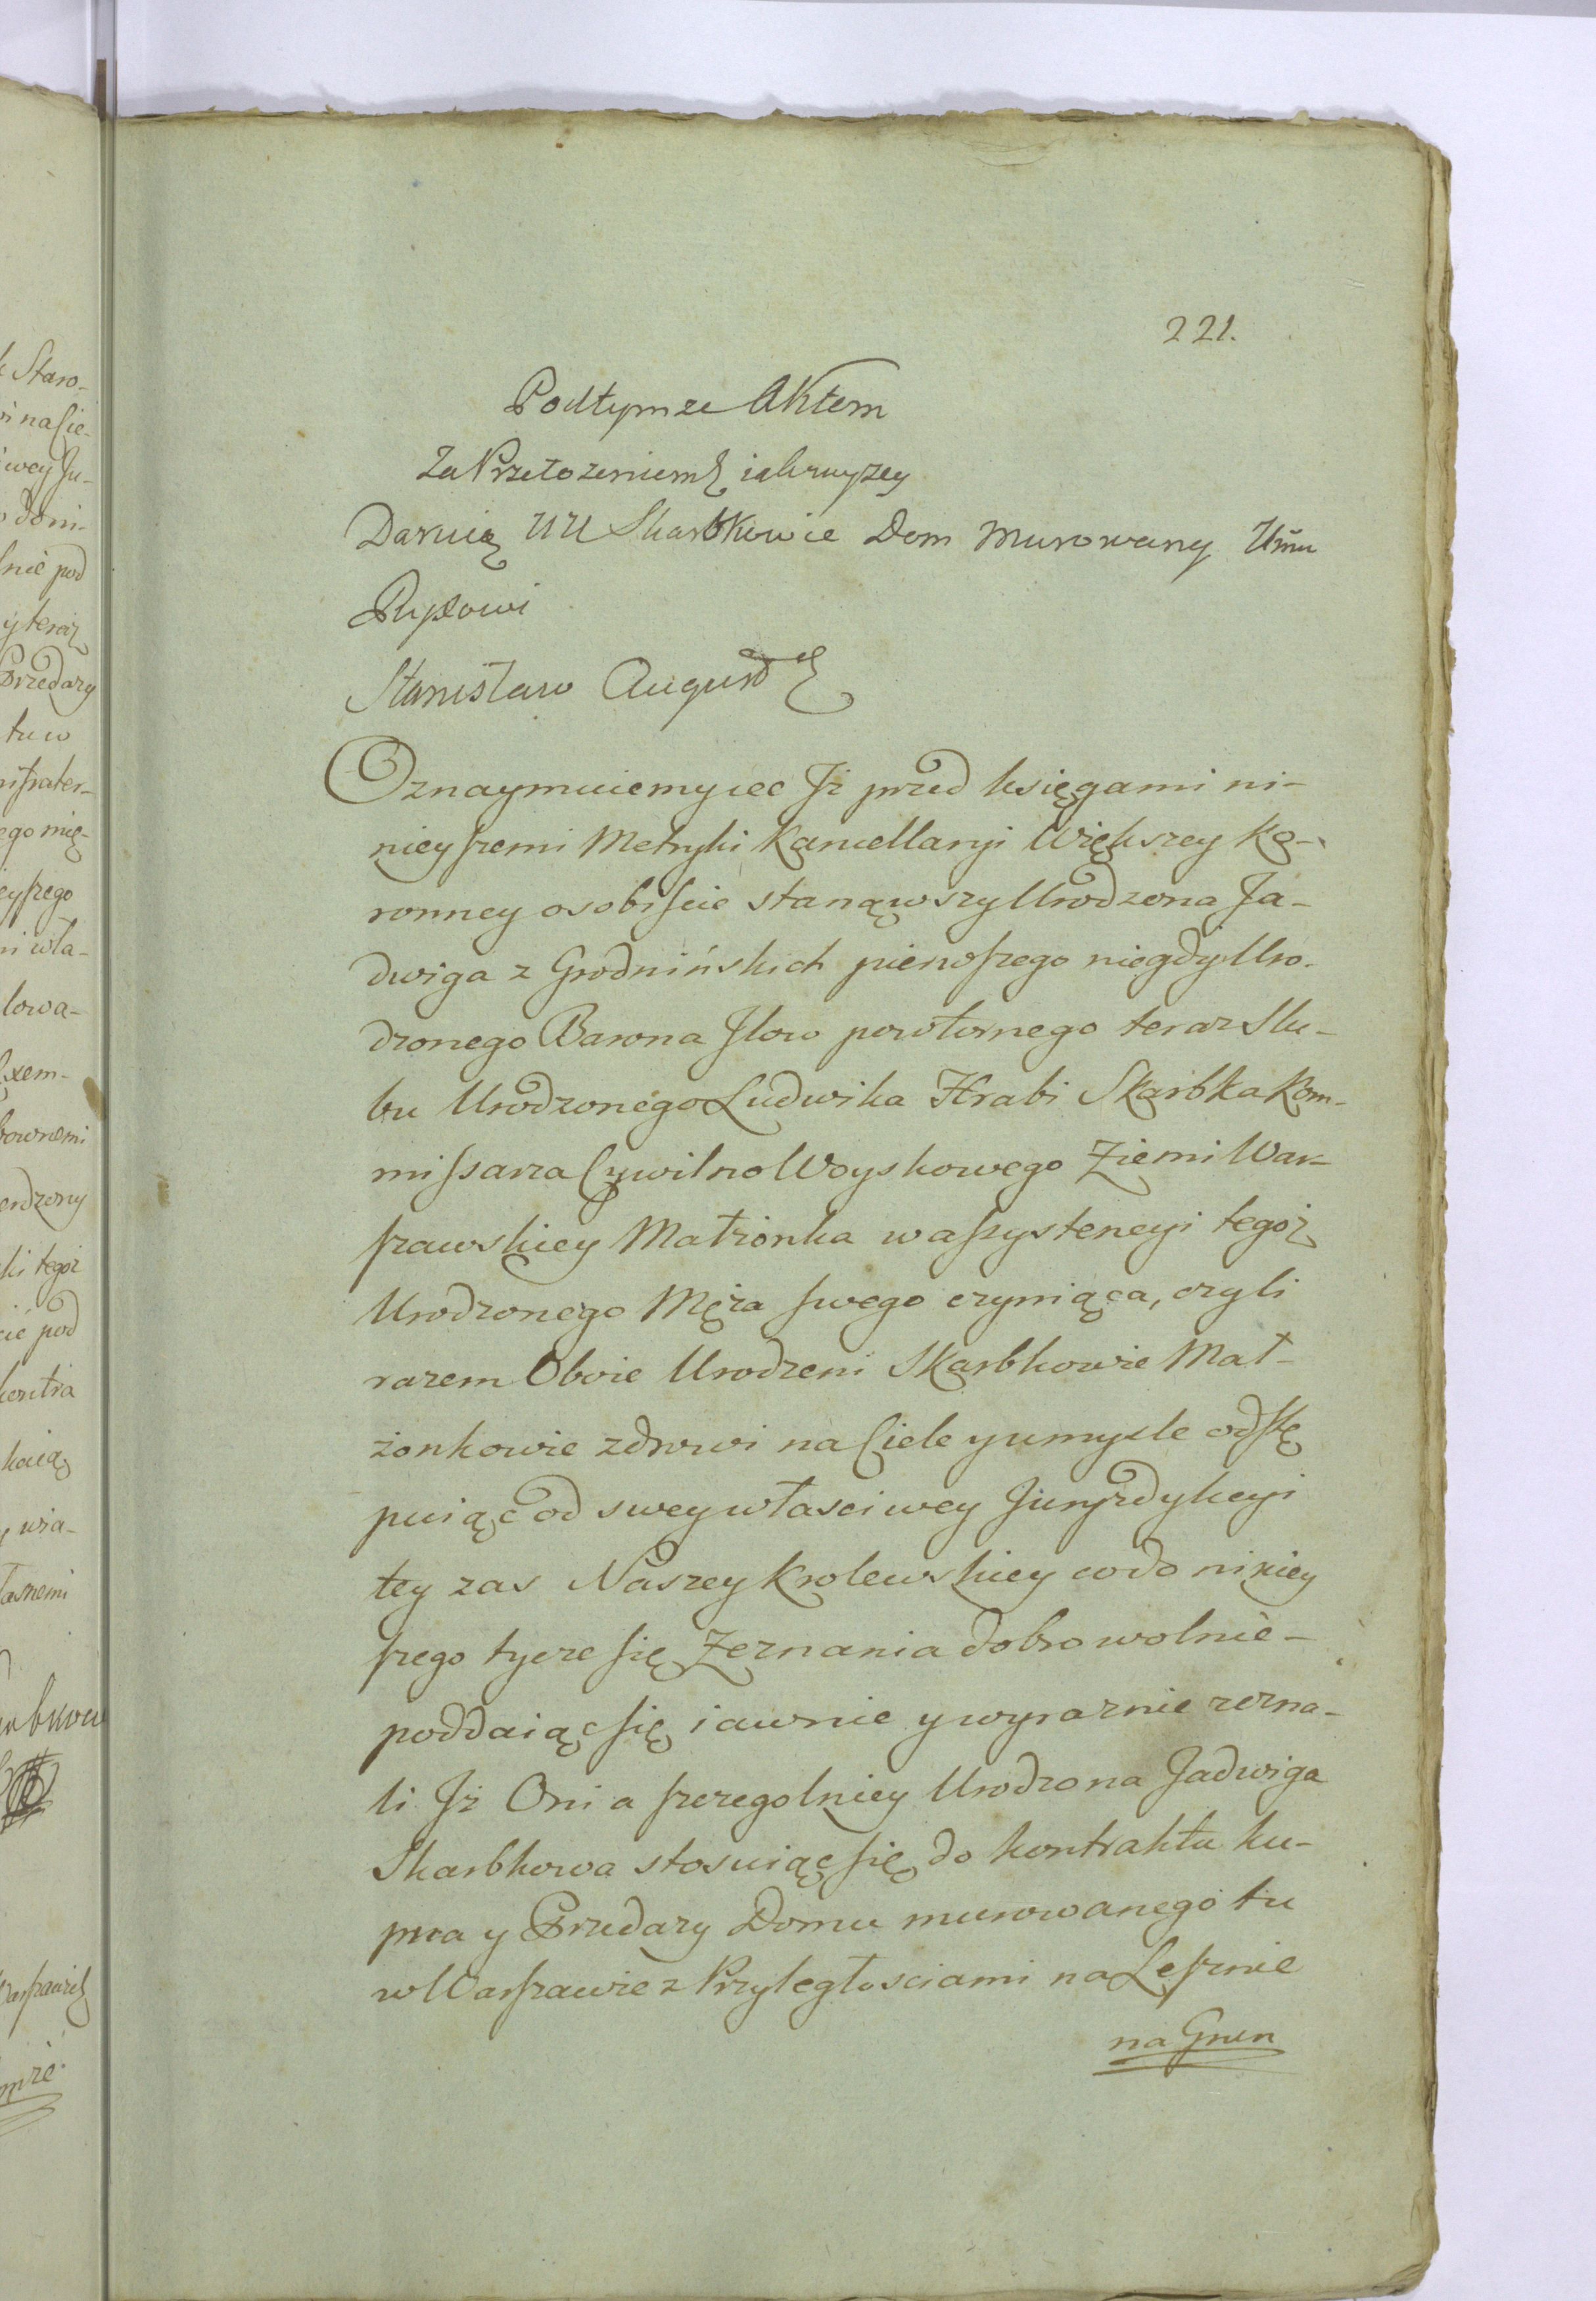 221.
Podtymze Aktem
Za Przełozeniem jakwyzey
Daruią UU Skarbkowie Dom Murowany Urmu
Ryxowi
Stanisław August
Oznaymuiemy ecc Jż przed księgami ni-
nieyszemi Metryki Kancellaryi Większey Ko-
ronney osobiscie stanąwszy Urodzona Ja-
dwiga z Grodnińskich pierwszego niegdy Uro-
dzonego Barona Jlow powtornego teraz Slu-
bu Urodzonego Ludwika Hrabi Skarbka Kom-
missarza Cywilno Woyskowego Ziemi War-
szawskiey Małżonka w assystencyi tegoż
Urodzonego Męża swego czyniąca, czyli
razem Oboie Urodzeni Skarbkowie Mał-
żonkowie zdrowi na Ciele y umysle odstę
puiąc od swey własciwey Juryzdykcyi
tey zas Naszey Krolewskiey co do niniey
szego tycze się Zeznania dobrowolnie -
poddaiąc się iawnie y wyraznie zezna-
li Jż Oni a szczegolniey Urodzona Jadwiga
Skarbkowa stosuiąc się do kontraktu ku-
pna y Przedazy Domu murowanego tu
w Warszawie z Przyległosciami na Lesznie
na Grun
k Staro-
na Cie-
wey Ju-
doni-
lnie pod
y teraz
Przedazy
tu w
ego mię-
eyszego
ni wła-
lowa-
Exem-
erdzony
ki tegoż
cie pod
kontra
kaią
wia-
łasnemi